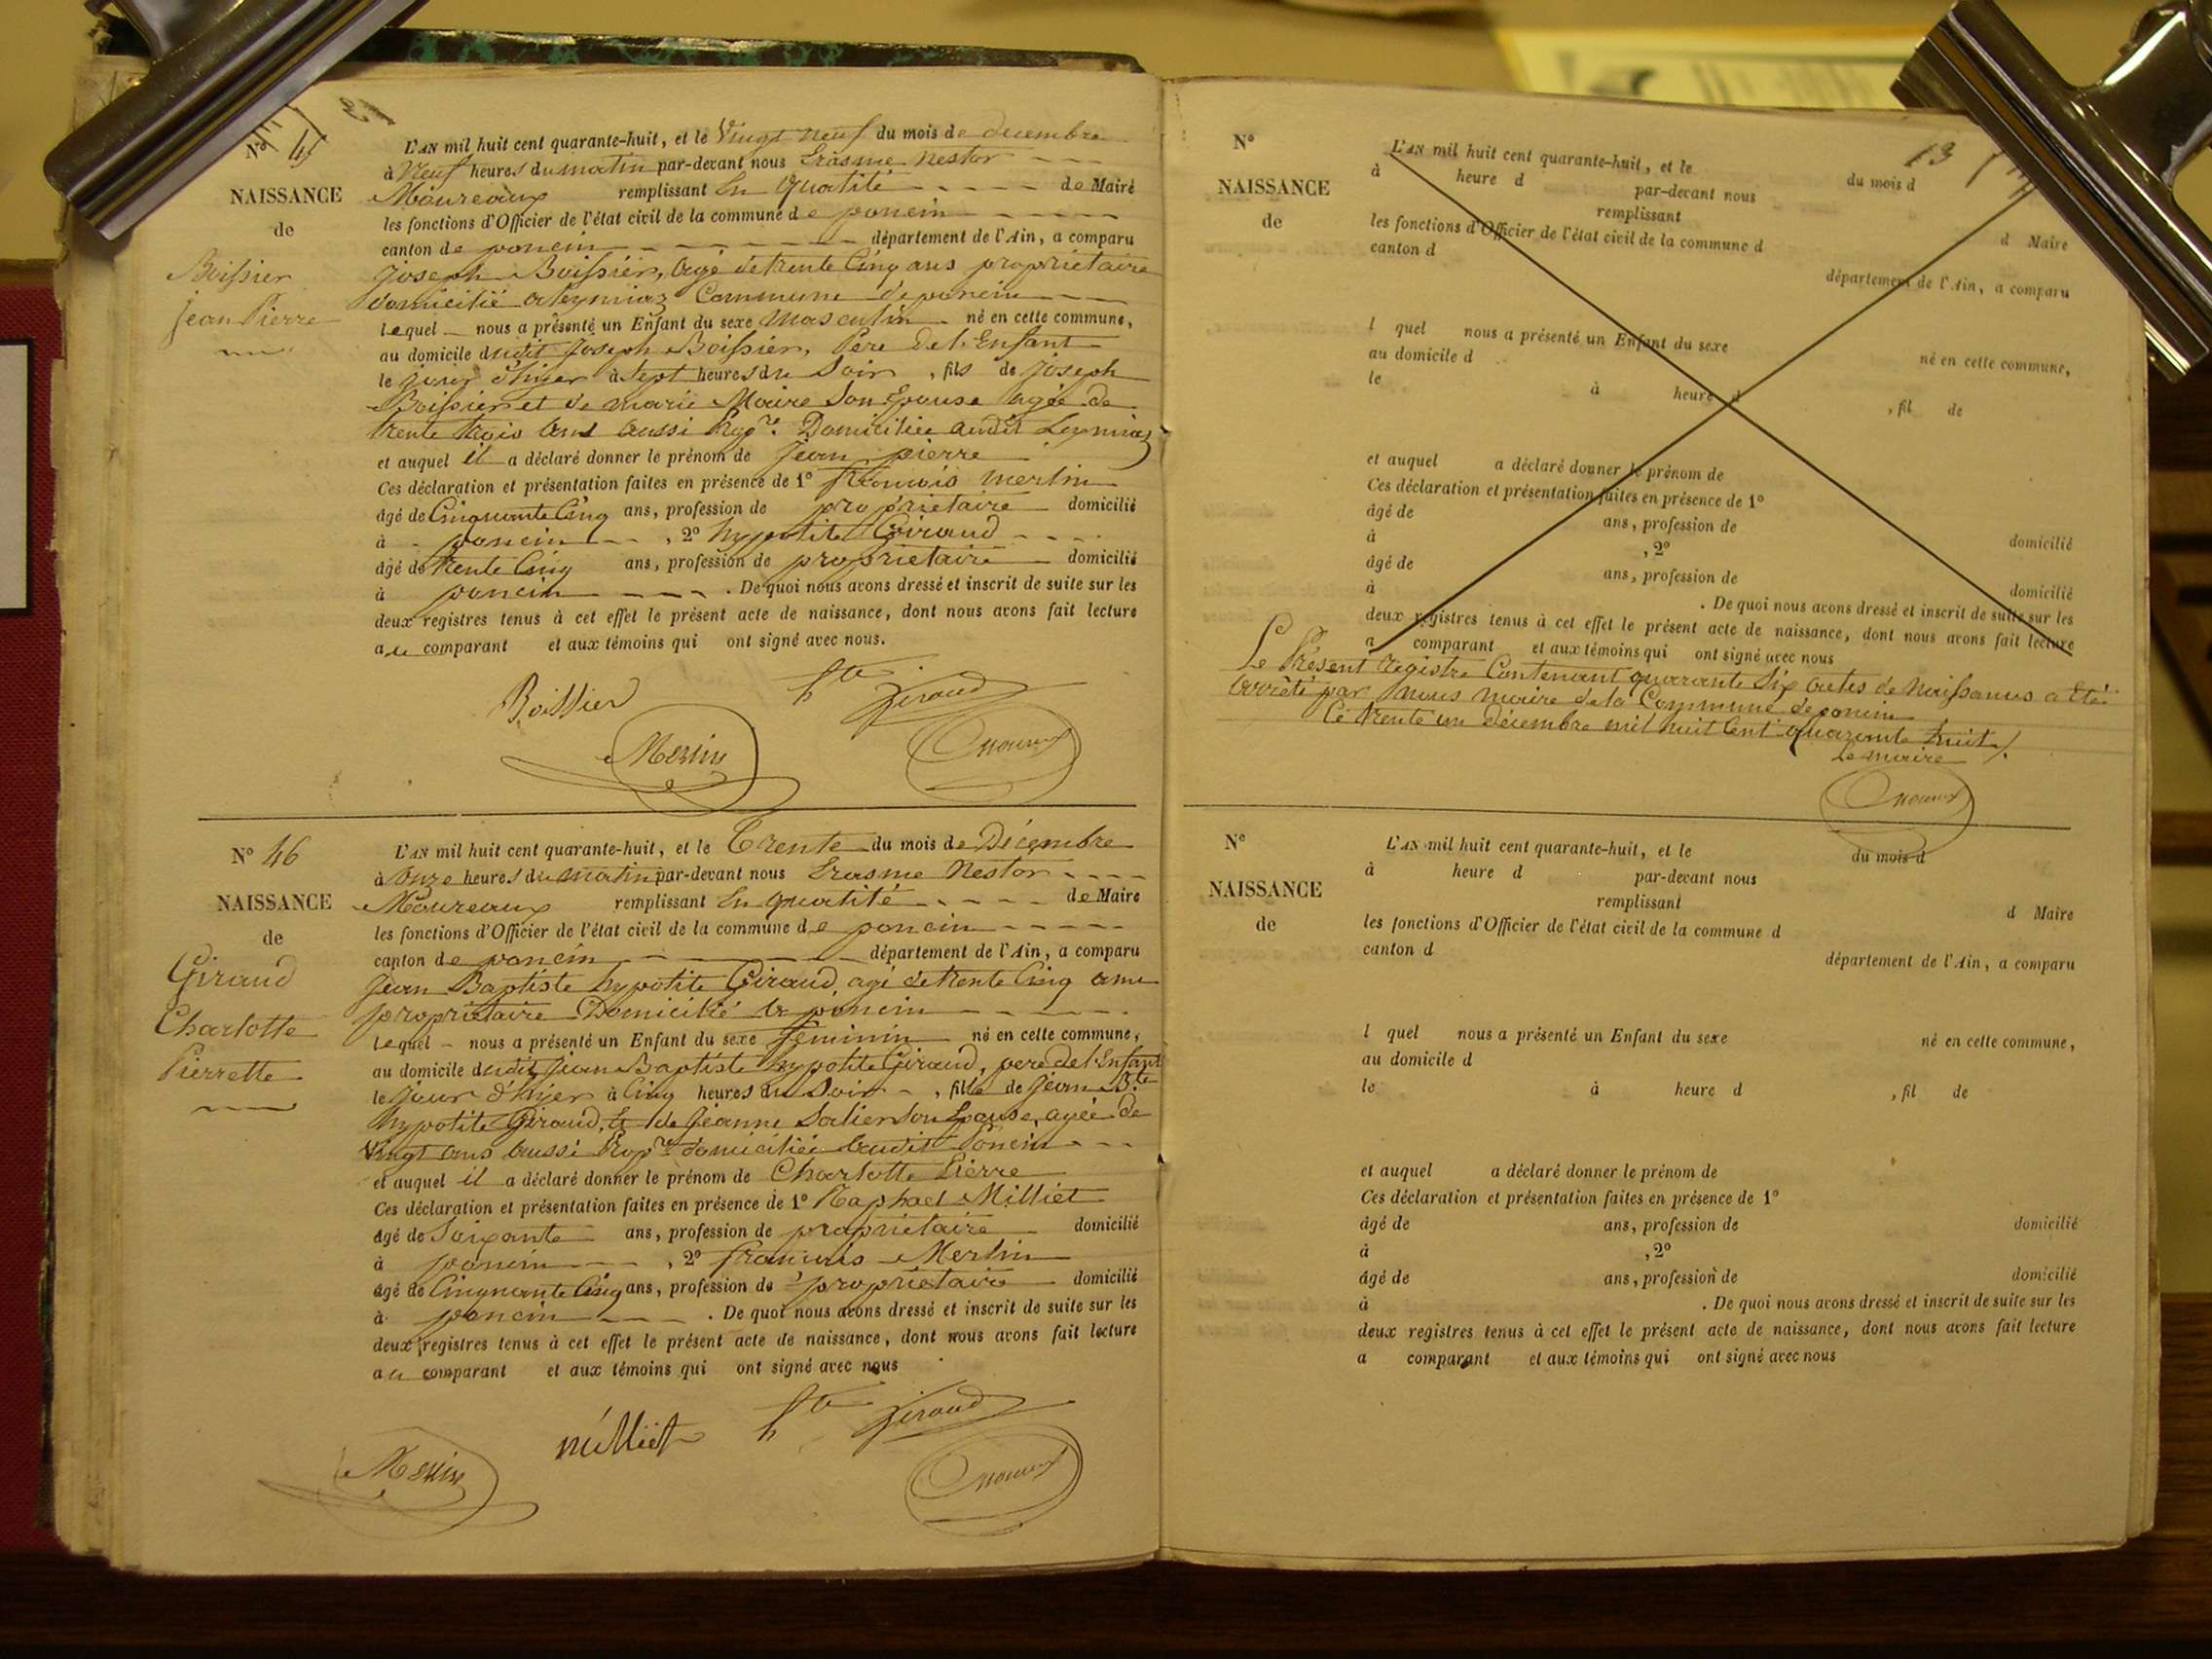 Nº 45
NAISSANCE
de
Boissier
Jean Pierre
L'AN mil huit cent quarante-huit, et le Vingt neuf du mois de decembre
à Neuf heures du matin par-devant nous Erasme Nestor
Moureaux remplissant En Qualité de Maire
les fonctions d'Officier de l'état civil de la commune de poncin
canton de poncin département de l'Ain, a comparu
joseph Boissier, agé de trente Cinq ans propriétaire
domicilié a leymiaz Commune de poncin
lequel nous a présenté un Enfant du sexe Masculin né en cette commune,
au domicile dudit Joseph Boissier, Père de l'Enfant
le jour d'hyer à Sept heures du Soir , fils de joseph
Boissier et de marie Moire Son Epouse agée de
trente trois ans aussi Propre. Domiciliée audit Leymiaz
et auquel il a déclaré donner le prénom de Jean pierre
Ces déclaration et présentation faites en présence de 1º francois merlin
âgé de Cinquante Cinq ans, profession de propriétaire domicilié
à poncin , 2º hypolite Giraud
âgé de trente Cinq ans, profession de propriétaire domicilié
à poncin . De quoi nous avons dressé et inscrit de suite sur les
deux registres tenus à cet effet le présent acte de naissance, dont nous avons fait lecture
au comparant et aux témoins qui ont signé avec nous.
Boissier hte Giraud
Merlin Moureaux
Nº 46
NAISSANCE
de
Giraud
Charlotte
Pierrette
L'AN mil huit cent quarante-huit, et le Trente du mois de Décembre
à Onze heures du matin par-devant nous Erasme Nestor
Moureaux remplissant En qualité de Maire
les fonctions d'Officier de l'état civil de la commune de poncin
canton de poncin département de l'Ain, a comparu
Jean Baptiste hypolite Giraud, agé de trente Cinq ans
propriétaire Domicilié a poncin
lequel nous a présenté un Enfant du sexe féminin né en cette commune,
au domicile dudit Jean Baptiste hypolite Giraud, pere de l'Enfant
le jour d'hyer à Cinq heures du Soir , fille de Jean Bte
hypolite Giraud, Et de Jeanne Salier Son Epouse, agée de
Vingt ans aussi Propre domiciliée audit Poncin
et auquel il a déclaré donner le prénom de Charlotte Pierre
Ces déclaration et présentation faites en présence de 1º Raphael Milliet
âgé de Soixante ans, profession de propriétaire domicilié
à poncin , 2º francois Merlin
âgé de Cinquante Cinq ans, profession de propriétaire domicilié
à poncin . De quoi nous avons dressé et inscrit de suite sur les
deux registres tenus à cet effet le présent acte de naissance, dont nous avons fait lecture
au comparant et aux témoins qui ont signé avec nous
milliet hte Giraud
Merlin Moureaux
13
Nº
NAISSANCE
de
L'AN mil huit cent quarante-huit, et le du mois d
à heure d par-devant nous
remplissant d Maire
les fonctions d'Officier de l'état civil de la commune d
canton d département de l'Ain, a comparu
l quel nous a présenté un Enfant du sexe né en cette commune,
au domicile d
le à heure d , fil de
et auquel a déclaré donner le prénom de
Ces déclaration et présentation faites en présence de 1º
âgé de ans, profession de domicilié
à , 2º
âgé de ans, profession de domicilié
à . De quoi nous avons dressé et inscrit de suite sur les
deux registres tenus à cet effet le présent acte de naissance, dont nous avons fait lecture
a comparant et aux témoins qui ont signé avec nous
Le Présent registre Contenant quarante Six actes de Naissances a Eté
arrêté par nous maire de la Commune de poncin
Ce trente un décembre mil huit Cent quarante huit
Le maire
Moureaux
Nº
NAISSANCE
de
L'AN mil huit cent quarante-huit, et le du mois d
à heure d par-devant nous
remplissant d Maire
les fonctions d'Officier de l'état civil de la commune d
canton d département de l'Ain, a comparu
l quel nous a présenté un Enfant du sexe né en cette commune,
au domicile d
le à heure d , fil de
et auquel a déclaré donner le prénom de
Ces déclaration et présentation faites en présence de 1º
âgé de ans, profession de domicilié
à , 2º
âgé de ans, profession de domicilié
à . De quoi nous avons dressé et inscrit de suite sur les
deux registres tenus à cet effet le présent acte de naissance, dont nous avons fait lecture
a comparant et aux témoins qui ont signé avec nous